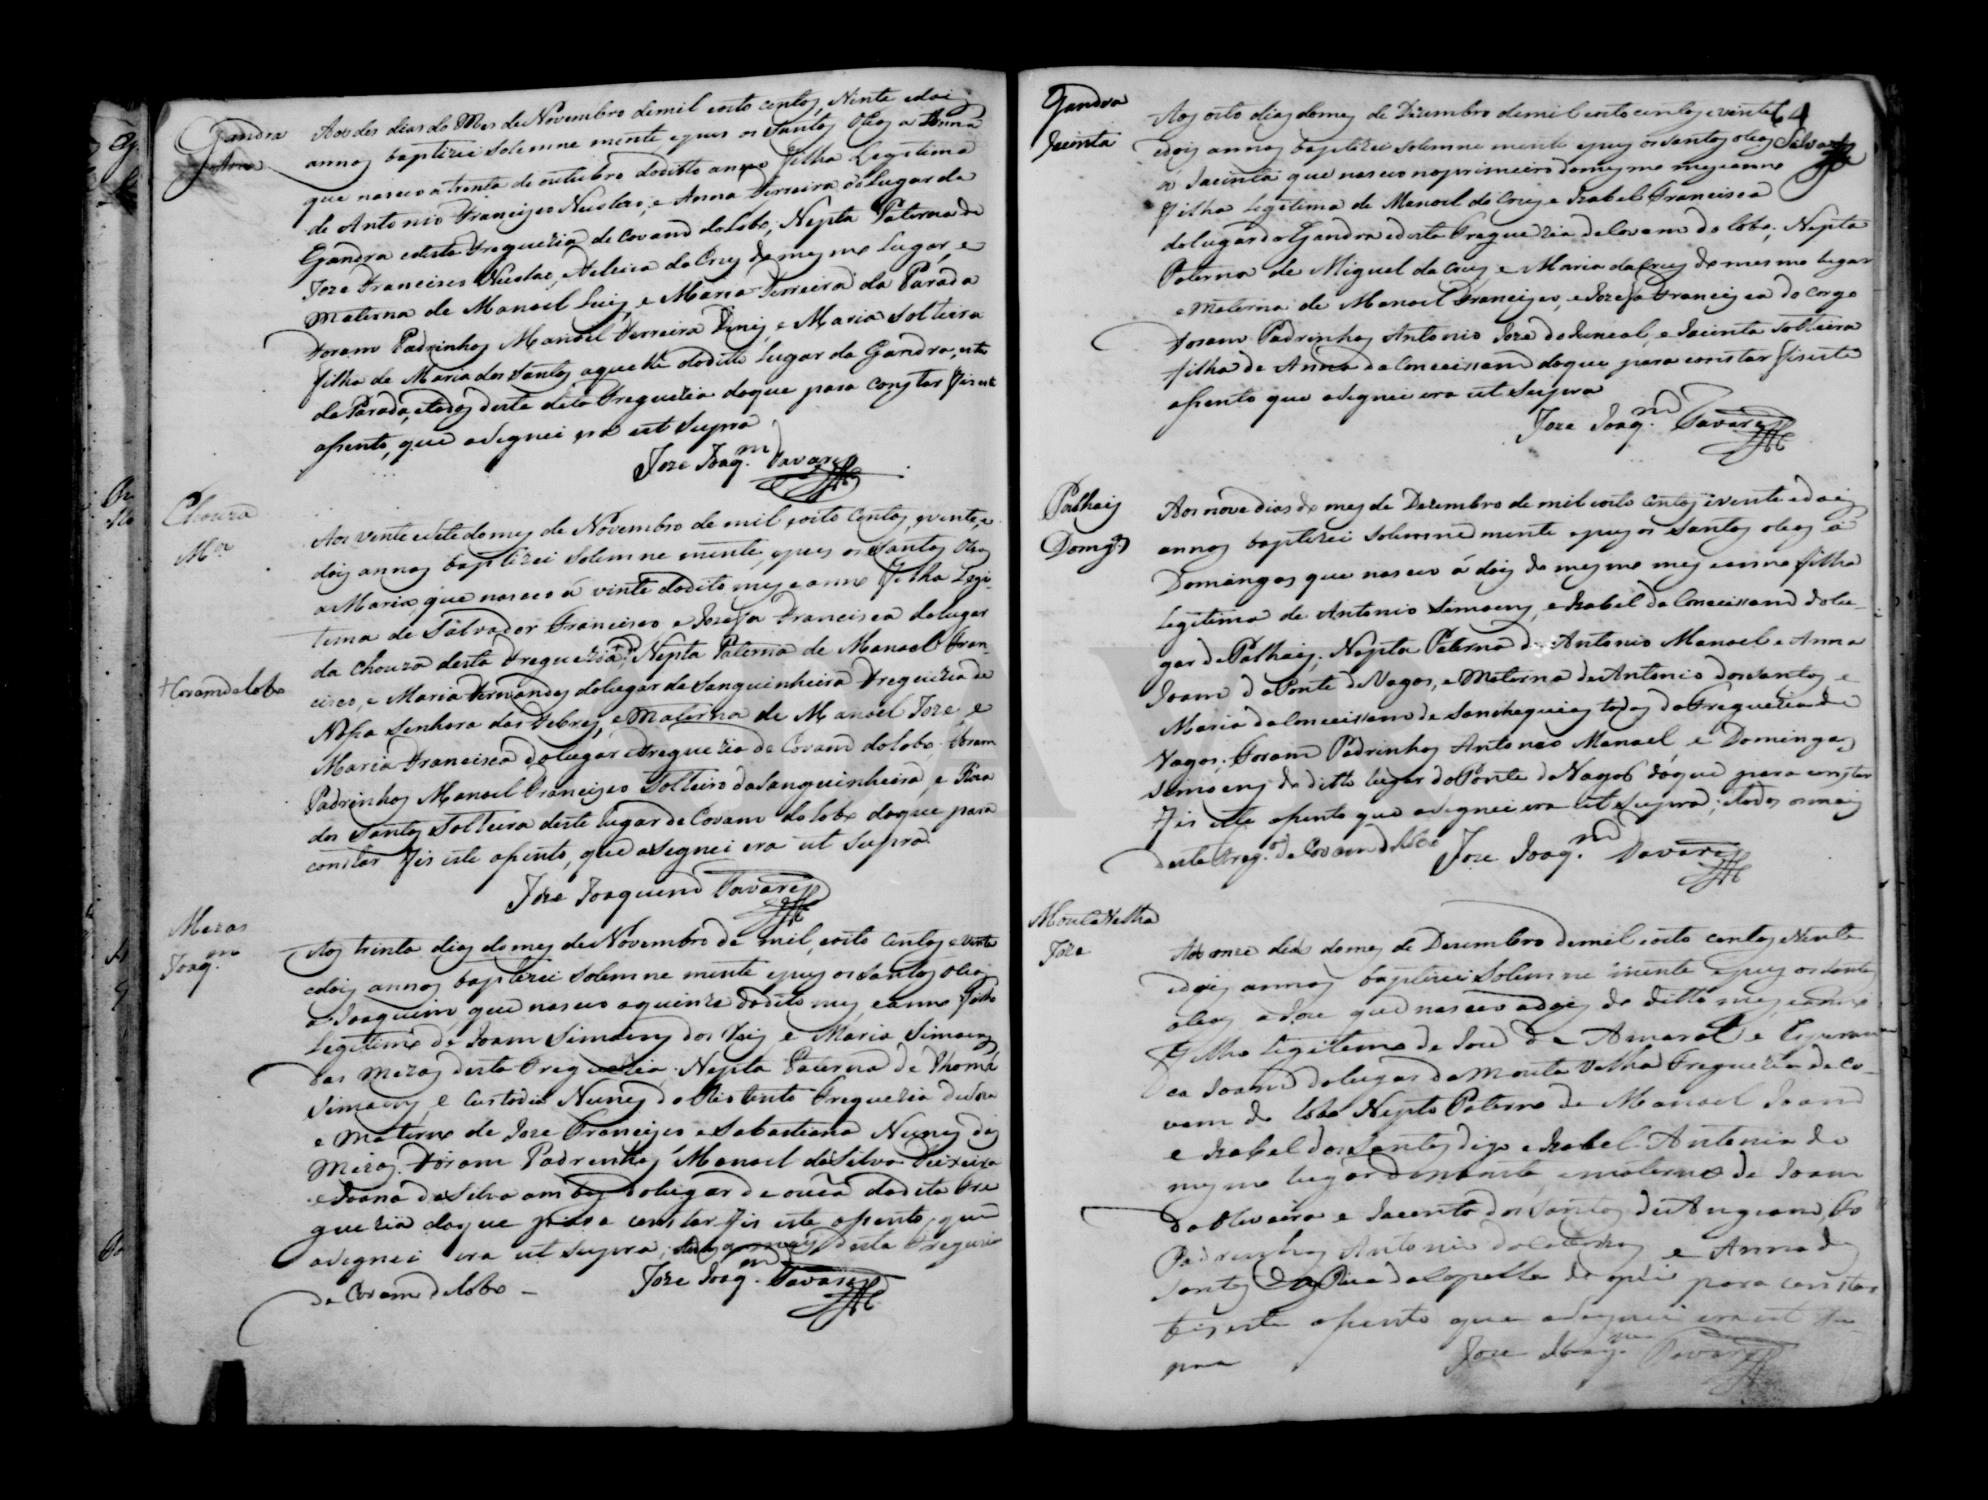 Gandra
Anna
Aos des dias do Mes de Novembro de mil oito centos, Vinte e dois
annos baptizei solemne mente e pus os Santos Oleos a Anna
que nasceo a trinta de outubro do ditto anno filha Legitima
de Antonio Francisco e Anna Ferreira do Lugar da
Gandra e desta Freguezia de Covam do Lobo, Nepta Paterna de
Joze Francisco e da Cruz do mesmo Lugar, e
Materna de Manoel Luis, e Maria Ferreira da Parada
Foram Padrinhos Manoel Ferreira Diniz, e Maria Solteira
filha de Maria dos Santos aquelle do dito Lugar da Gandra, esta
da Parada, e todos desta dita Freguezia do que para constar fis este
aSento, que asignei era ut Supra
Joze Joaq.m Tavares
Chouza
M.a
Aos vinte e sete do mes de Novembro de mil oito centos, e vinte e
dois annos baptizei solemne mente, e pus os Santos Oleos
a Maria, que nasceo a vinte do dito mes e anno filha Legi-
tima de Salvador Francisco e Josefa Francisca do lugar
da Chouza desta Freguezia, Nepta Paterna de Manoel Fran-
+ Covam do lobo
cisco, e Maria Fernandes do lugar da Sanguinheira Freguezia de
NoSa Senhora das Febres, e Materna de Manoel Joze, e
Maria Francisca do lugar e Freguezia de Covam do lobo. Foram
Padrinhos Manoel Francisco Solteiro da Sanguinheira, e Roza
dos Santos Solteira deste lugar de Covam do lobo do que para
constar fis este aSento, que asegnei era ut Supra
Joze Joaquim Tavares
Mezas
Joaq.m
Aos trinta dias do mes de Novembro de mil, oito centos, e vinte
e dois annos baptizei solemne mente e pus os Santos Oleos
a Joaquim, que nasceo a quinze do dito mes, e anno filho
Legitimo de Joam Simoens dos Reis e Maria Simoens
das Mezas desta Freguezia. Nepto Paterno de Thomé
Simoens, e Custodia Nunes do Freguezia de Soza
e Materno de Joze Francisco e Sabastiana Nunes das
Mezas. Foram Padrinhos Manoel da Silva Teixeira
e Joana da Silva ambos do lugar de ouca da dita Fre
guezia do que para constar fis este aSento, que
asignei era ut Supra, desta Freguezia
de Covam do lobo -
Joze Joaq.m Tavares
64
Gandra
Jacinta
Aos oito dias do mes de Dezembro de mil oito centos e vinte
e dois annos baptizei solemne mente e pus os santos oleos
a Jacinta que nasceo no primeiro do mesmo mes e anno
filha Legitima de Manoel da Cruz e Izabel Francisca
do lugar da Gandra e desta Freguezia de Covam do lobo, Nepta
Paterna de Miguel da Cruz, e Maria da Cruz do mesmo lugar
e Materna de Manoel Francisco, e Josefa Francisca do Corgo
Foram Padrinhos Antonio Joze do Juncal, e Jacinta Solteira
filha de Anna da Conceissam do que para constar fis este
aSento que asignei era ut Supra
Joze Joaq.m Tavares
Palhais
Domgos
Aos nove dias do mes de Dezembro de mil oito centos e vinte e dois
annos baptizei Solemne mente e pus os Santos oleos a
Domingos que nasceo a dois do mesmo mes e anno filho
Legitimo de Antonio Simoens, e Izabel da Conceissam do lu-
gar de Palhais. Nepto Paterno de Antonio Manoel e Anna
Joam da Ponte de Vagos, e Materno de Antonio dos Santos e
Maria da Conceissam de Sanchequias todos da Freguezia de
Vagos. Foram Padrinhos Antonio Manoel e Domingas
Simoens do ditto lugar da Ponte de Vagos do que para constar
Fis este aSento que asignei era ut Supra, e todos os mais
desta Freg.a de Covam do lobo Joze Joaq.m Tavares
Mouta Velha
Joze
Aos onze dias do mes de Dezembro de mil oito centos e Vinte
e dois annos baptizei Solemne mente e pus os Santos
oleos a Joze que nasceo a dois do ditto mes, e anno
Filho Legitimo de Joze de Amaral e Esperan-
ca Joam do lugar da Mouta Velha Freguezia de Co-
vam do lobo Nepto Paterno de Manoel Joam
e Izabel dos Santos digo e Izabel Antonia do
mesmo lugar, e materno de Joam
de Oliveira e Jacinta dos Santos
Padrinhos Antonio e Anna dos
Santos da Rua da Capella do que para constar
fis este aSento que asignei era ut Su-
pra
Joze Joaq.m Tavares